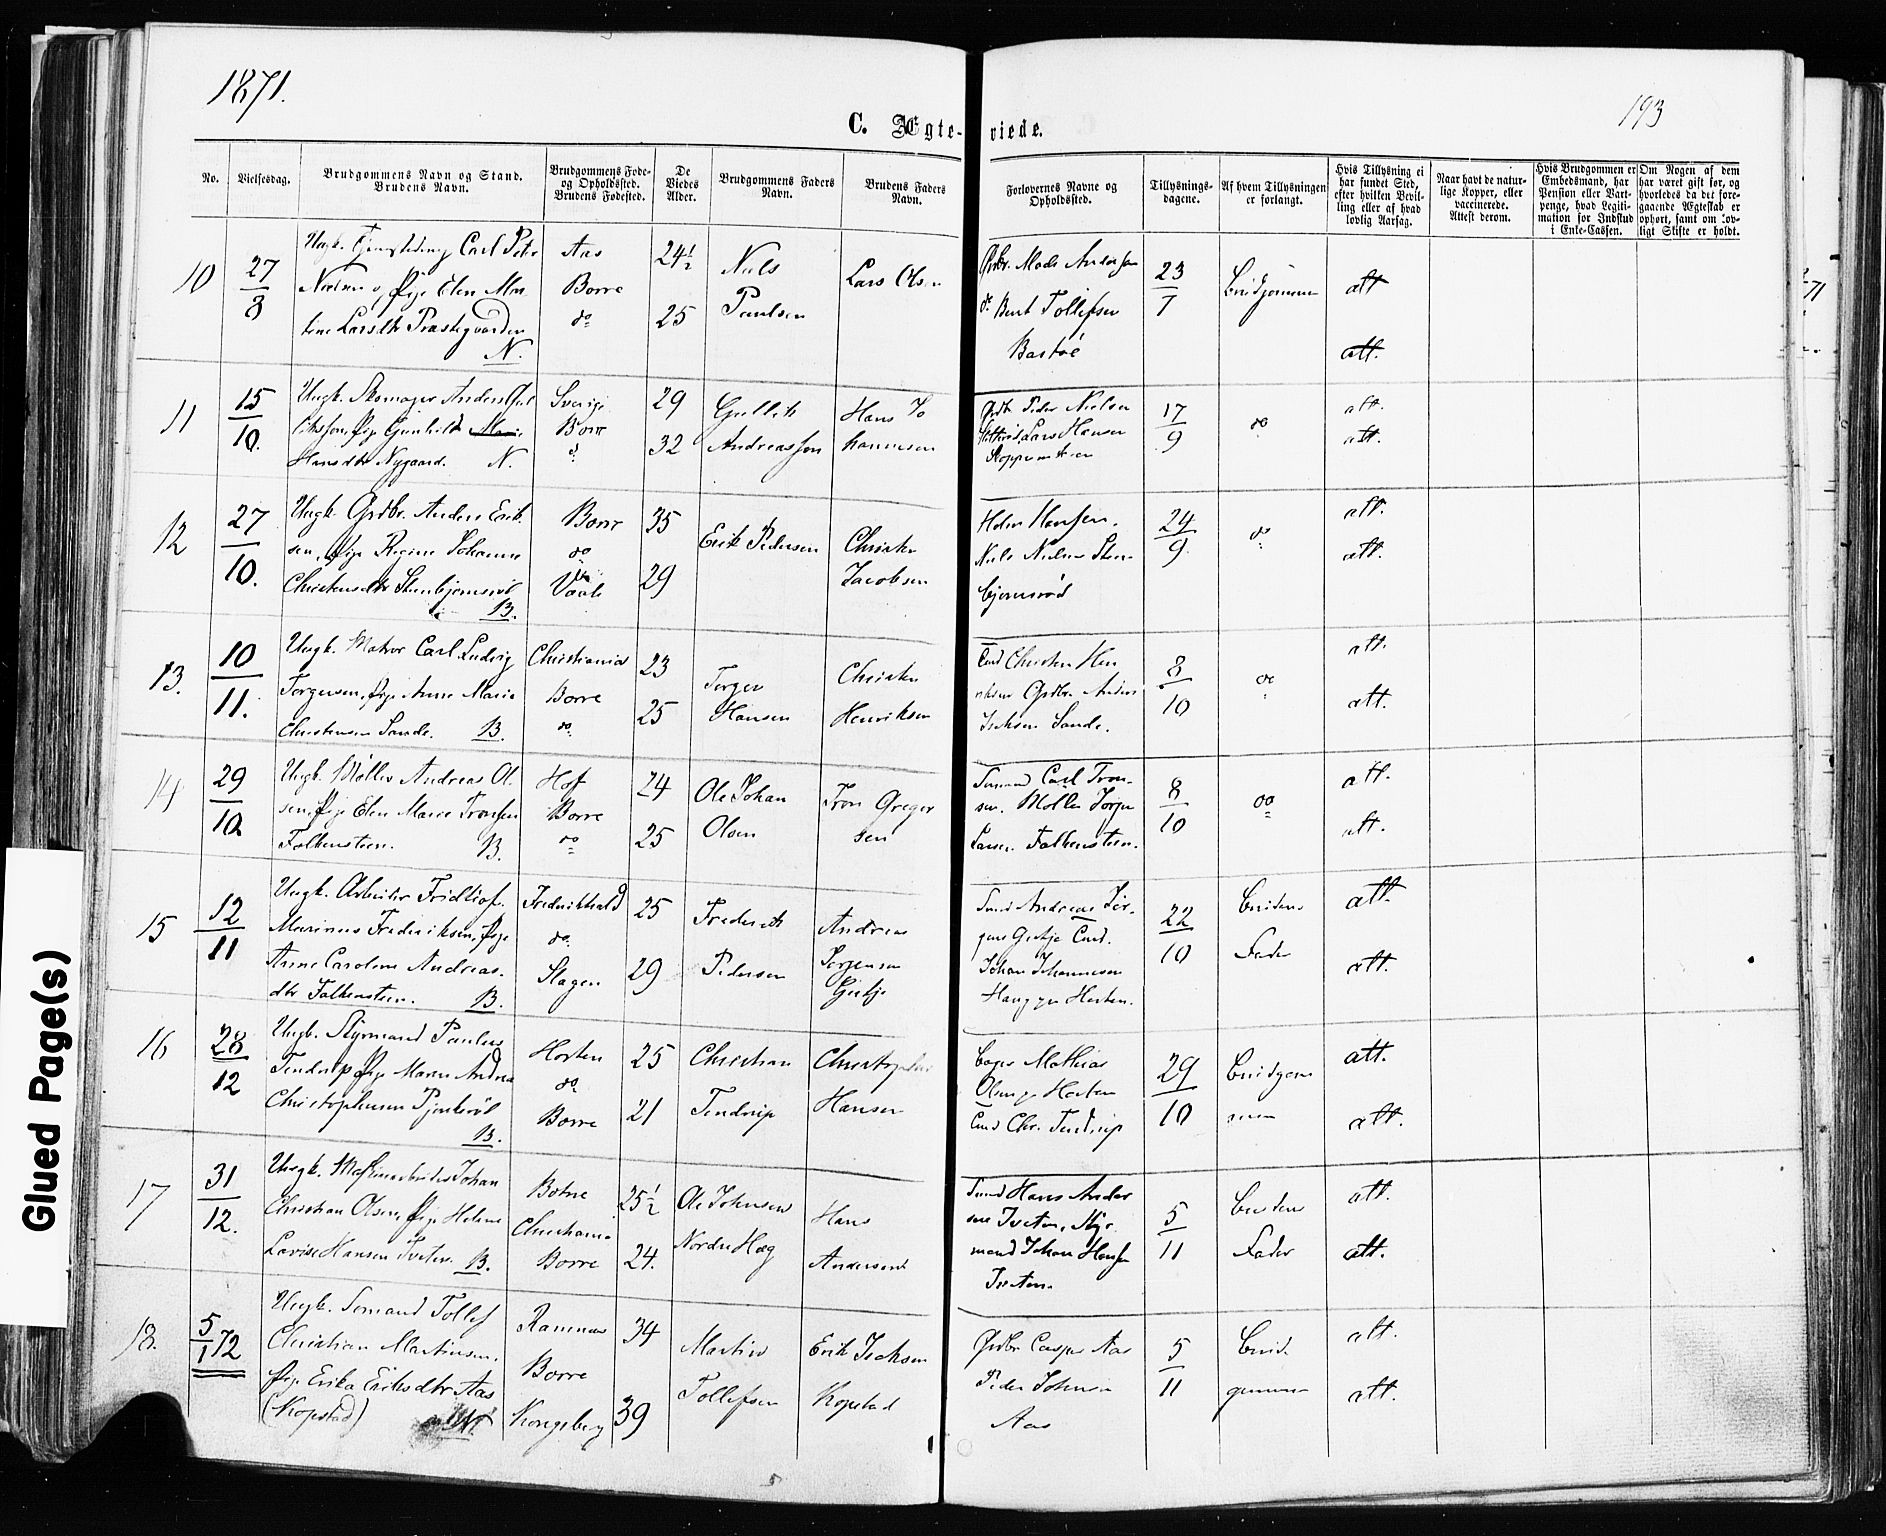 1871.
193
C. Ægte-
viede.
No.
Vielsesdag.
Brudgommens Navn og Stand.
Brudens Navn.
Brudgommens Føde-
og Opholdssted.
Brudens Fødested.
De
Viedes
Alder.
Brudgommens Faders
Navn.
Brudens Faders
Navn.
Forlovernes Navne og
Opholdssted.
Tillysnings-
dagene.
Af hvem Tillysningen
er forlangt.
Hvis Tillysning ei
har fundet Sted,
efter hvilken Bevil-
ling eller af hvad
lovlig Aarsag.
Naar havt de natur-
lige Kopper, eller
vaccinerede.
Attest derom.
Hvis Brudgommen er
Embedsmand, har
Pension eller Vart-
penge, hvad Legiti-
mation for Indskud
i Enke-Cassen.
Om Nogen af dem
har været gift før, og
hvorledes da det fore-
gaaende Ægteskab er
ophørt, samt om lov-
ligt Skifte er holdt.
10
27
8
Ungk. Carl Peter
Nielsen og Pige Elen Mar
tine Larsdtr Præstegaarden
N.
Aas
Borre
do
24½
25
Niels
Paulsen
Lars Olsen
Grdbr. Mads Anderssen
do Bent Tollefsen
Bastøe
23
7
Brudgommen
att
att.
11
15
10.
Ungk. Skomager Anders Gul
liksson, Pige Gunhild Marie
Hansdtr Nygaard. N.
Sverige
Borre
do
29
32
Gullik
Andreasson
Hans Jo
hannesen
Grdb. Peder Nielsen
Lars Hansen
17
9
do
att.
att.
12
27
10.
Ungk. Grdbr. Anders Erik
sen, Pige Regine Johanne
Christensdtr Stenbjørnsrød
B.
Borre
do
Vaale
35
29
Erik Pedersen
Christen
Jacobsen
Holm Hansen.
Niels Nielsen Sten
bjørnsrød
24
9.
do
att.
att.
13.
10
11.
Ungk. Matros Carl Ludvig
Torgersen, Pige Anne Marie
Christensen Sande. B.
Christiania
Borre
do.
23
25
Torger
Hansen
Christen
Henriksen
Christen Hen
riksen Grdbr. Anders
Isaksen Sande.
8
10
do
att.
att.
14
29
10
Ungk. Møller Andreas Ol
sen, Pige Elen Marie Tronsen
Falkensteen. B.
Hof
Borre
do
24
25
Ole Johan
Olsen
Tron Greger
sen
Carl Tron
sen. Møller Jørgen
Larsen Falkensteen.
8
10
do
att.
att.
15
12
11
Ungk. Arbeider Fridtjof
Marinus Frederiksen, Pige
Anne Caroline Andreas-
dtr Falkensteen. B.
Frederikshald
do.
Slagen
25
29
Frederik
Pedersen
Andreas
Jørgensen
Andreas Jør-
gensen
Johan Johannesen
Horten.
22
10
Brudens
Fader
att.
att.
16
28
12
Ungk. Styrmand Paulus
Tendrup Pige Maren Andrea
Christophersen
B.
Horten
do
Borre
25
21
Christian
Tendrup
Christopher
Hansen
Mathias
Olsen Horten
Chr. Tendrup
29
10
Brudgom
men
att.
att.
17
31
12.
Ungk. Maskinarbeider Johan
Christian Olsen, Pige Helene
Lovise Hansen Tveten. B.
Botne
Christiania
Borre
25½
24.
Ole Johnsen
Nordre Hæg
Hans
Andersen
Hans Ander
sen Tveten, Styr
mand Johan Hansen
Tveten.
5
11
Brudens
Fader
att.
att.
18.
5
1 72
Ungk. Sømand Tollef
Christian Martinsen.
Pige Erika Eriksdtr Aas
(Kopstad)
N.
Ramnes
Borre
Kongsberg
34
39
Martin
Tollefsen
Erik Isaksen
Kopstad
Grdbr Casper Aas
Peder Johnsen
Aas
5
11
Brud
gommen
att.
att.
Glued Page(s)